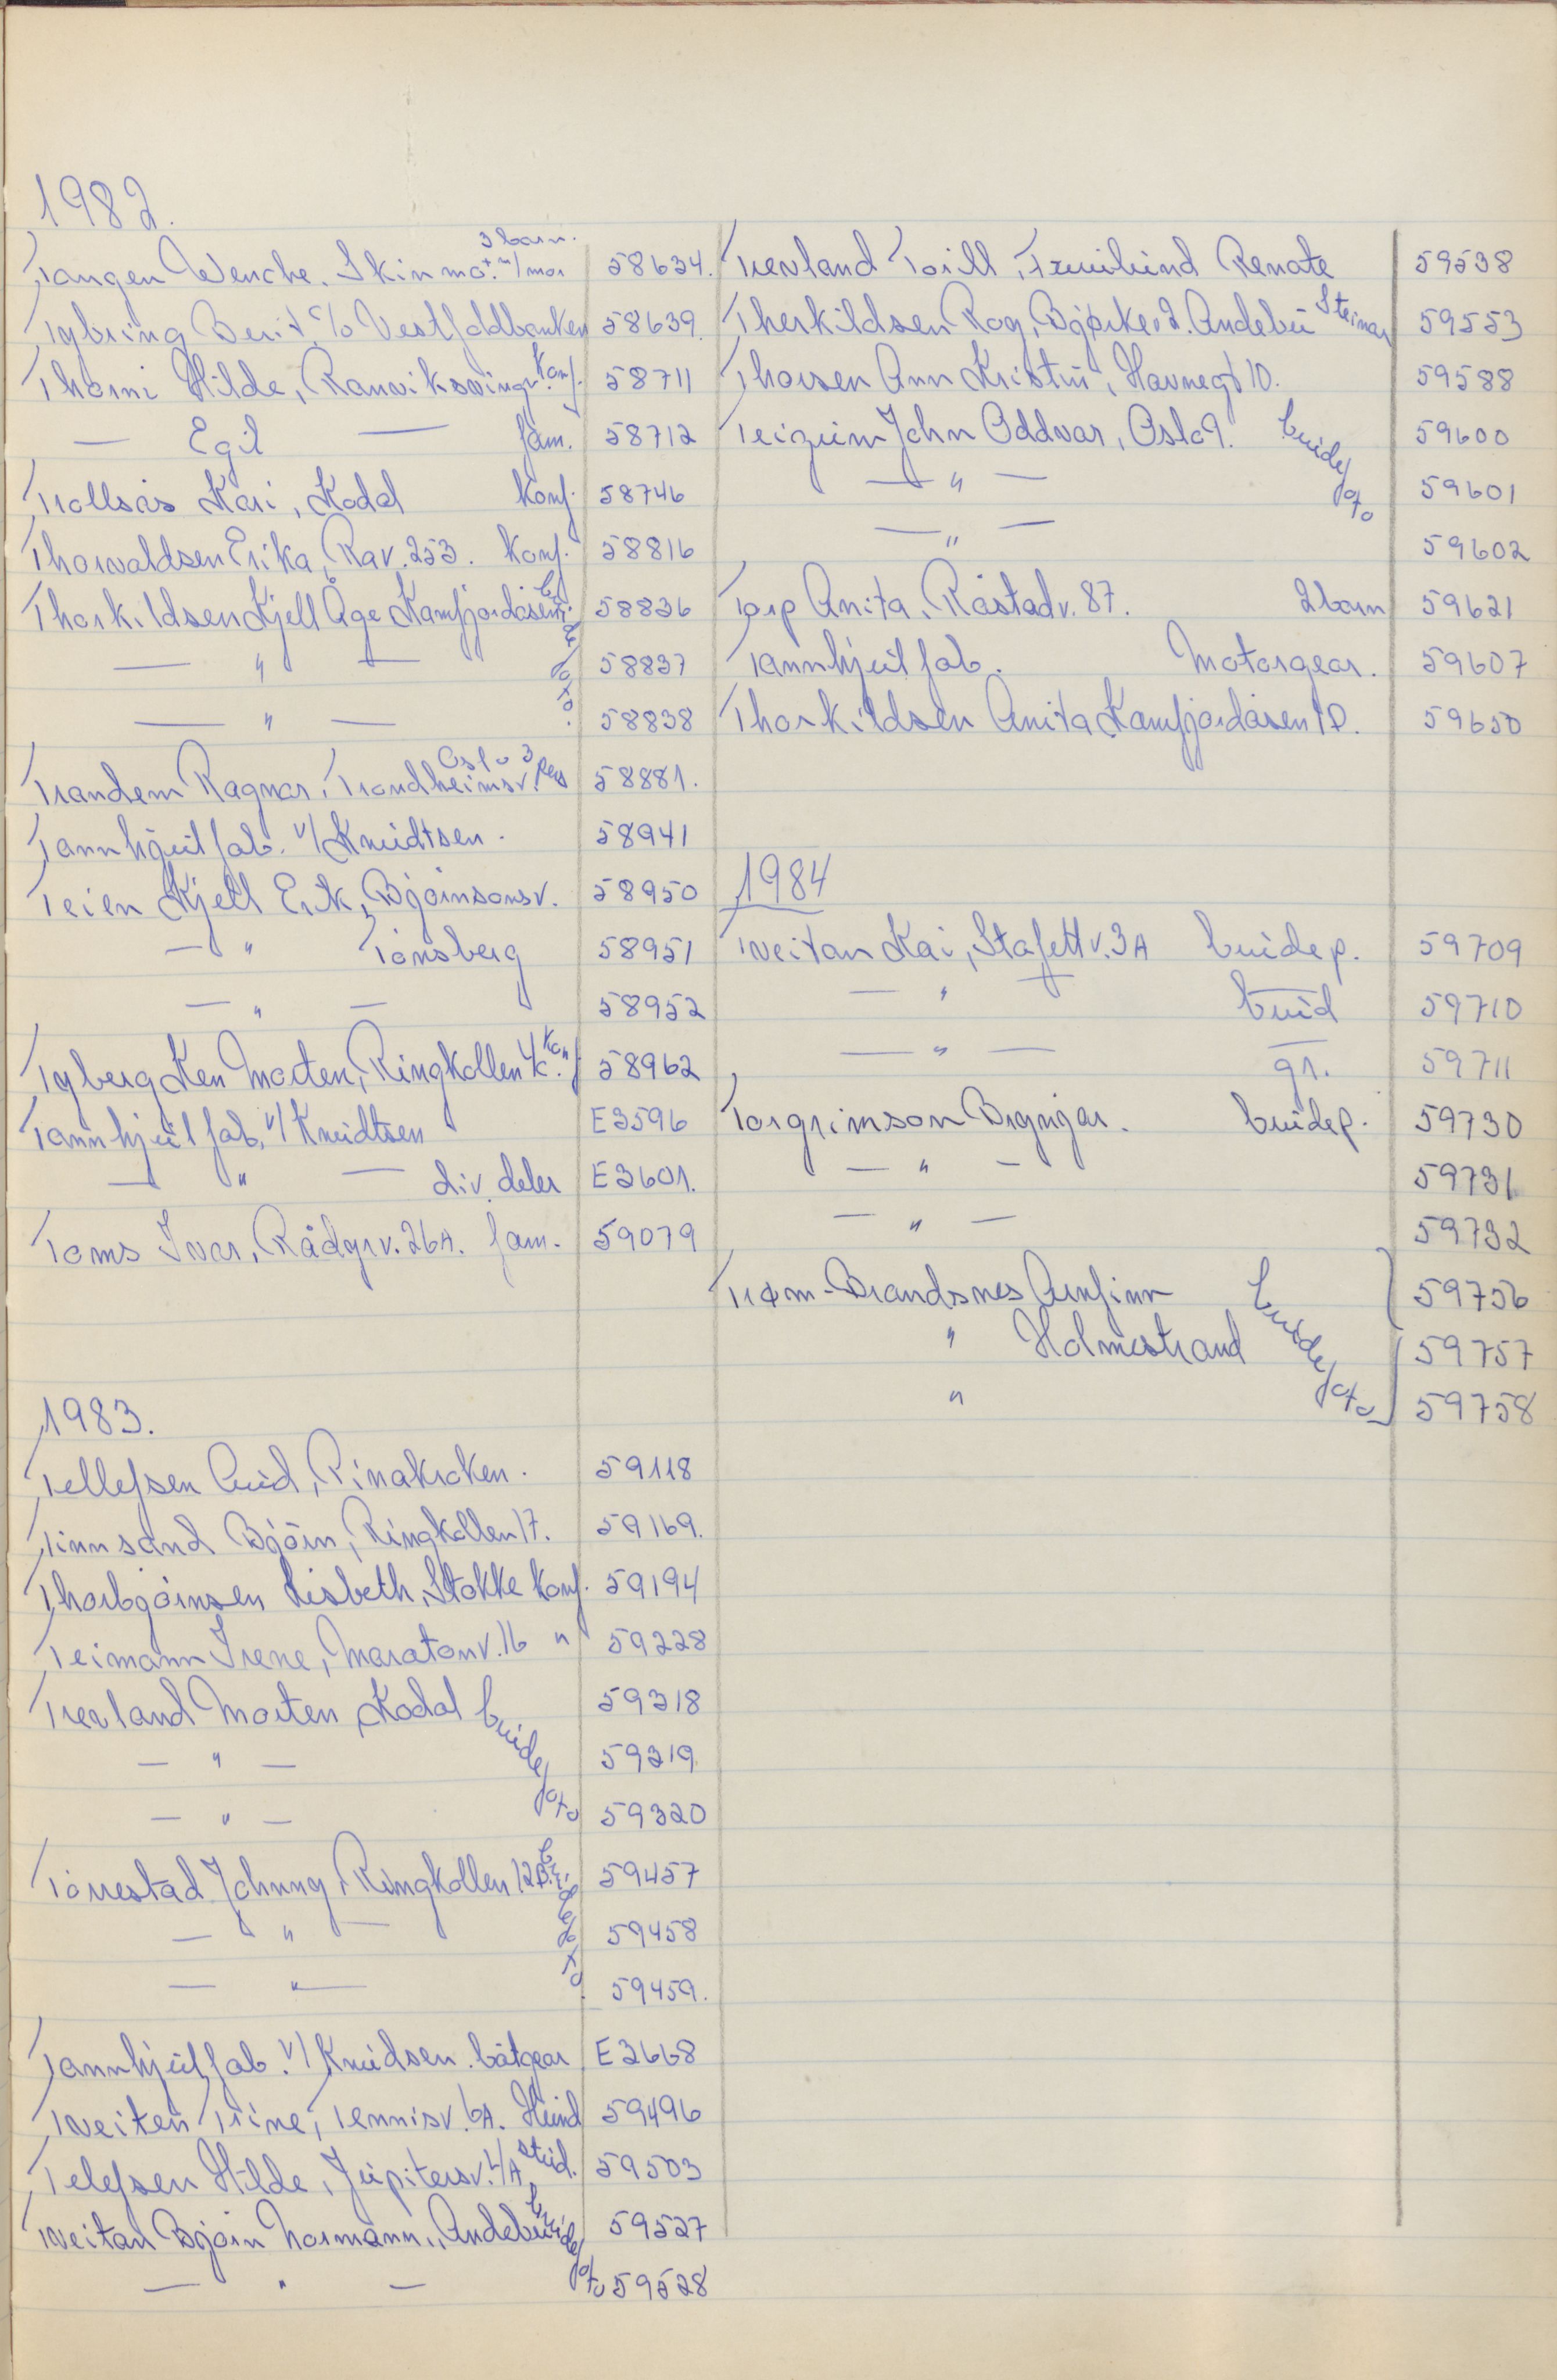 1982.
Tangen Wenche. Skinmo + m/mor 3 barn. 58634.
Tybring Berit, c/o Vestfoldbanken 58639.
Thorni Hilde, Ranviksvingen Konf. 58711
— Egil — fam. 58712
Trollsås Kari, Kodal konf. 58746
Thorvaldsen Erika, Rav. 253. konf. 58816
Thorkildsen Kjell Åge Kamfjordåsen brudefoto. 58836
— " — 58837
— " — 58838
Trandem Ragnar, Trondheimsv. Oslo 3 pers 58881.
Tannhjulfab. v/ Knudtsen. 58941
Teien Kjell Erik, Bjørnsonsv. 58950
— " Tønsberg 58951
— " — 58952
Tyberg Ken Morten, Ringkollen 4c. Konf 58962
Tannhjulfab. v/ Knudtsen E3596
— " — div. deler E3601.
Toms Ivar, Rådyrv. 26A. fam. 59079
1983.
Tellefsen Aud, Pinakroken. 59118
Tinnsand Bjørn, Ringkollen 17. 59169.
Thorbjørnsen Lisbeth, Stokke konf. 59194
Teimann Irene, Maratonv. 16 " 59228
Trevland Morten, Kodal brudefoto 59318
— " — 59319.
— " — 59320
Torrestad Johnny, Ringkollen 12B. brudefoto. 59457
— " — 59458
— " — 59459.
Tannhjulfab. v/ Knudsen. båtgear E3668
Tveiten Trine, Tennisv. 6A. Hund 59496
Telefsen Hilde, Jupitersv. 4A stud. 59503
Tveitan Bjørn Normann, Andebu brudefoto 59527
— " — 59528
Trevland Torill, Renate 59538
Therkildsen Roy, Bjørkev 2. Andebu Steinar 59553
Thorsen Ann Kristin, Havnegt 10. 59588
Teigum John Oddvar, Oslo 9. brudefoto 59600
— " — 59601
— " — 59602
Torp Anita, Råstadv. 87. 2 barn 59621
Tannhjulfab. Motorgear. 59607
Thorkildsen Anita Kamfjordåsen 10. 59650
1984
Tveitan Kai, Stafettv. 3A brudep. 59709
— " — brud 59710
— " — gr. 59711
Torgrimson Brynjar. brudep. 59730
— " — 59731
— " — 59732
Trøm-Brandsnes Arnfinn brudefoto 59756
" Holmestrand 59757
" 59758